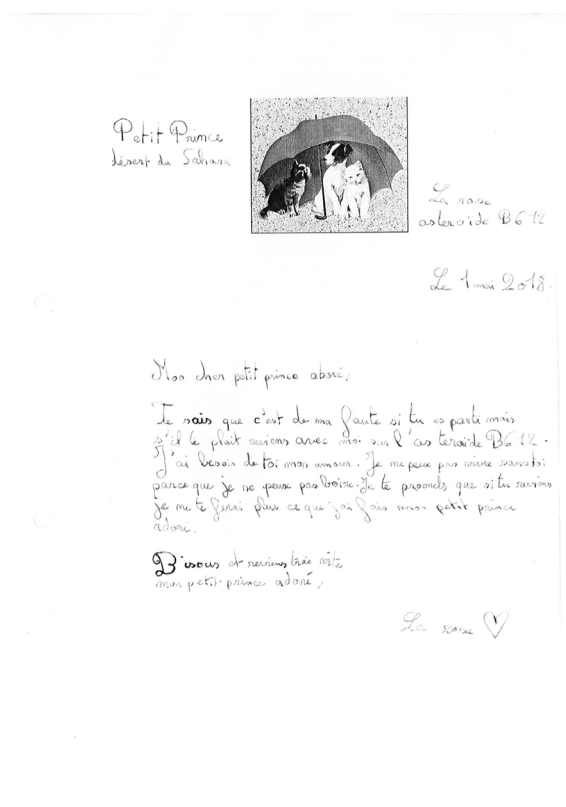 Petit Prince
désert du Sahara
La rose
asteroïde B612
Le 1 mai 2018.
Mon cher petit prince adoré,
Je sais que c'est de ma faute si tu es parti mais
s'él te plait reviens avec moi sur l'asteroïde B612.
J'ai besoin de toi mon amour. Je ne peux pas vivre sans toi
parce que je ne peux pas boire. Je te promets que si tu reviens
je ne te ferai plus ce que j'ai fais mon petit prince
adoré.
Bisous et reviens très vite
mon petit prince adoré,
La rose